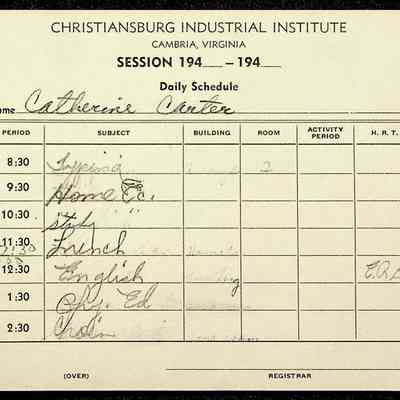 CHRISTIANSBURG INDUSTRIAL INSTITUTE
CAMBRIA, VIRGINIA
SESSION 194___—194___
Daily Schedule
ame Catherine Carter
PERIOD SUBJECT BUILDING ROOM ACTIVITY PERIOD H. R. T.
8:30 Typing 2
9:30 Home Ec.
10:30 study " "
11:30 French
12:30 English
1:30 Phy. Ed
2:30 Choir
(OVER) REGISTRAR